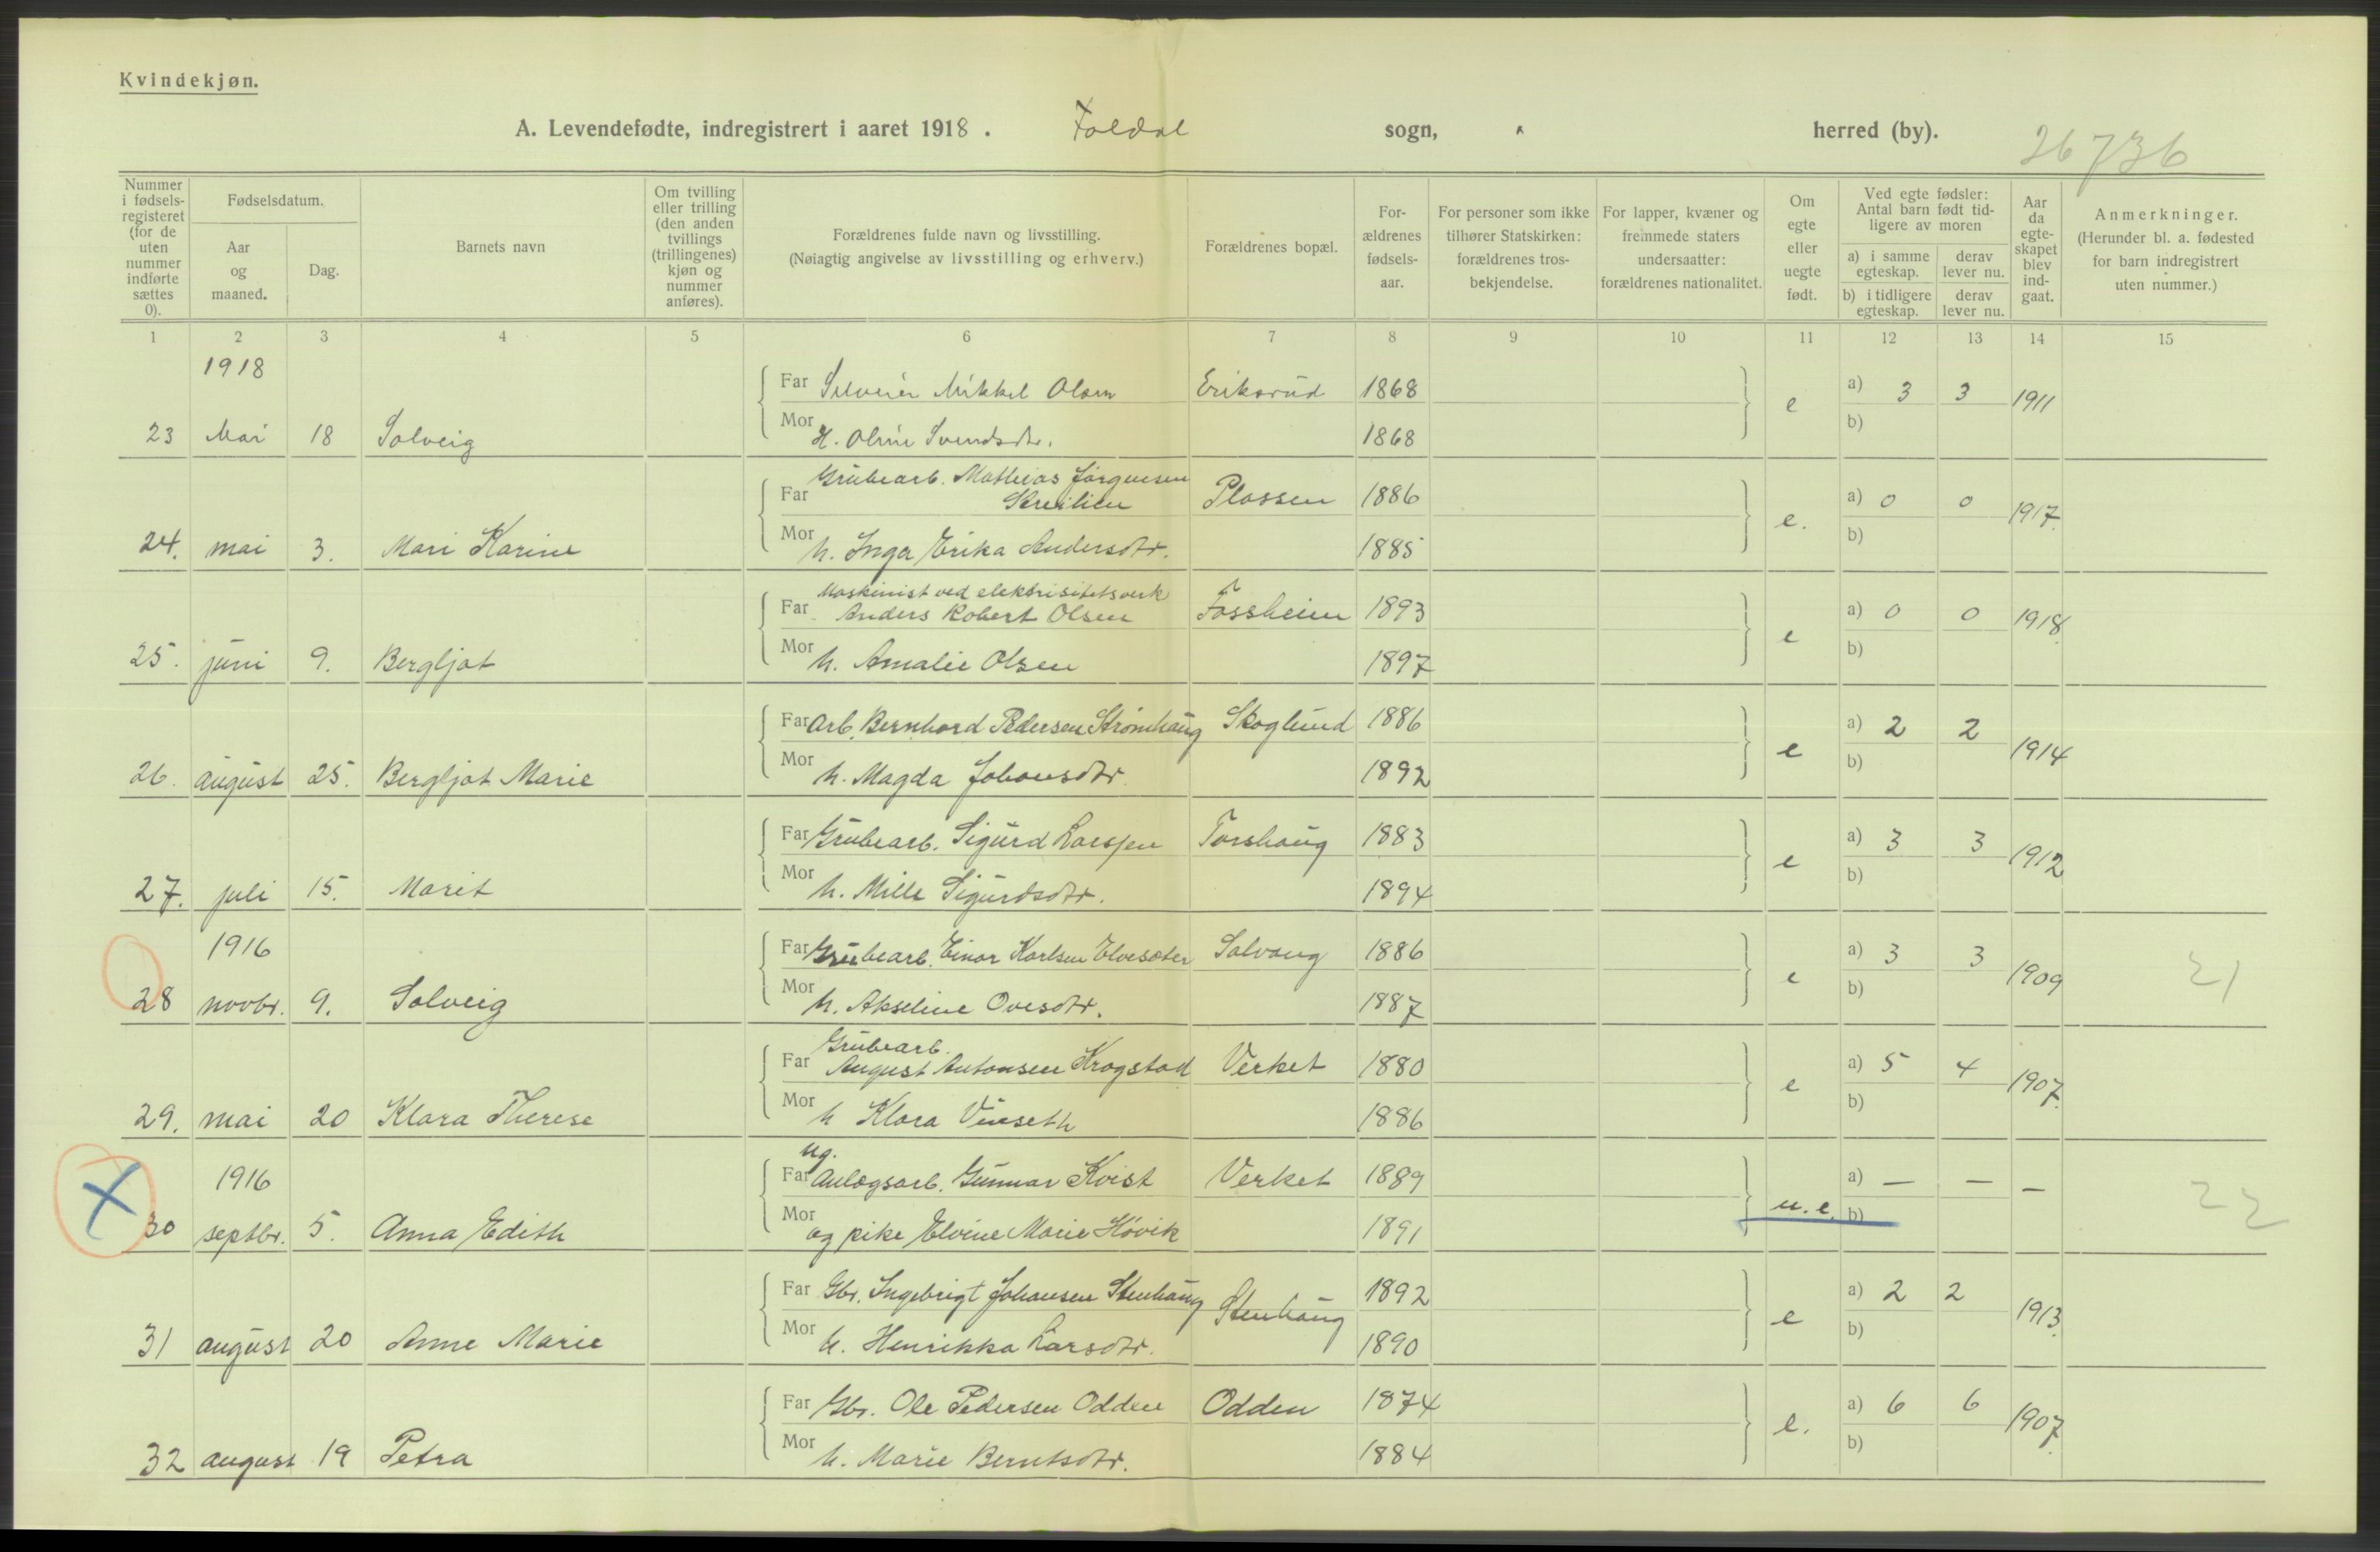 Kvindekjøn.
A. Levendefødte, indregistrert i aaret 1918. Foldal sogn, herred (by).
26736
Nummer i fødsels-registeret (for de uten nummer indførte sættes 0).
Fødselsdatum.
Aar og maaned.
Dag.
Barnets navn
Om tvilling eller trilling (den anden tvillings (trillingenes) kjøn og nummer anføres).
Forældrenes fulde navn og livsstilling. (Nøiagtig angivelse av livsstilling og erhverv.)
Forældrenes bopæl.
For-ældrenes fødsels-aar.
For personer som ikke tilhører Statskirken: forældrenes tros-bekjendelse.
For lapper, kvæner og fremmede staters undersaatter: forældrenes nationalitet.
Om egte eller uegte født.
Ved egte fødsler: Antal barn født tid-ligere av moren
a) i samme egteskap.
derav lever nu.
b) i tidligere egteskap.
derav lever nu.
Aar da egte-skapet blev ind-gaat.
Anmerkninger. (Herunder bl. a. fødested for barn indregistrert uten nummer.)
1 2 3 4 5 6 7 8 9 10 11 12 13 14 15
1918
Far Mikkel Olsen Eriksrud 1868 e a) 3 3 1911
23 Mai 18 Solveig Mor H. Oline Svendsdtr. 1868 b)
Grubearb. Mathias Jørgensen
Far Streitlien Plassen 1886 e. a) 0 0 1917.
24. mai 3. Mari Karine Mor h. Inga Erika Andersdtr. 1885 b)
Maskinist ved elektrisitetsverk
Far Anders Robert Olsen Fossheim 1893 e a) 0 0 1918
25. juni 9. Bergljot Mor h. Amalie Olsen 1897 b)
Far Arb. Bernhard Pedersen Strømhaug Skoglund 1886 e a) 2 2 1914
26. august 25. Bergljot Marie Mor h. Magda Johansdtr. 1892 b)
Far Grubearb. Sigurd Larssen Torshaug 1883 e a) 3 3 1912
27. juli 15. Marit Mor h. Mille Sigurdsdtr. 1894 b)
1916
Far Grubearb. Einar Karlsen Elvesæter Solvang 1886 e a) 3 3 1909 21
28 novbr. 9. Solveig Mor h. Akseline Ovesdtr. 1887 b)
Grubearb.
Far August Antonsen Krogstad Verket 1880 e a) 5 4 1907.
29. mai 20 Klara Therese Mor h Klara Vinseth 1886 b)
1916 Ug.
Far Anlægsarb. Gunnar Kvist Verket 1889 u.e. a) — — — 22
30 septbr. 5. Anna Edith Mor og pike Elvine Marie Høvik 1891 b)
Far Gbr. Ingebrigt Johansen Stenhaug Stenhaug 1892 e a) 2 2 1913.
31 august 20 Anne Marie Mor h. Henrikka Larsdtr. 1890 b)
Far Gbr. Ole Pedersen Odden Odden 1874 e. a) 6 6 1907.
32 august 19 Petra Mor h. Marie Berntsdtr. 1884 b)